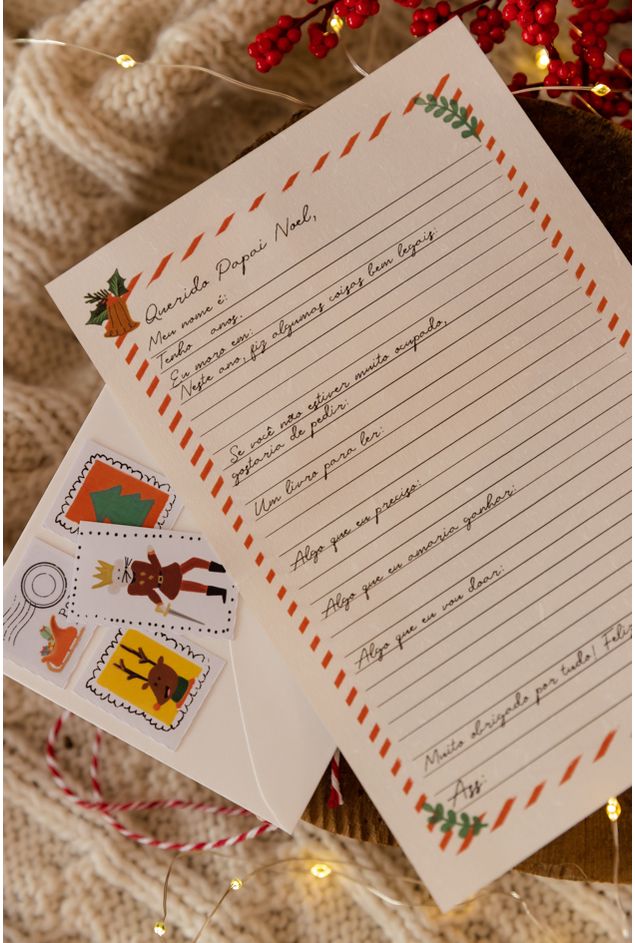 Querido Papai Noel,
Meu nome é:
Tenho anos.
Eu moro em:
Neste ano, fiz algumas coisas bem legais:
Se você não estiver muito ocupado,
gostaria de pedir:
Um livro para ler:
Algo que eu preciso:
Algo que eu amaria ganhar:
Algo que eu vou doar:
Muito obrigado por tudo! Feliz
Ass: